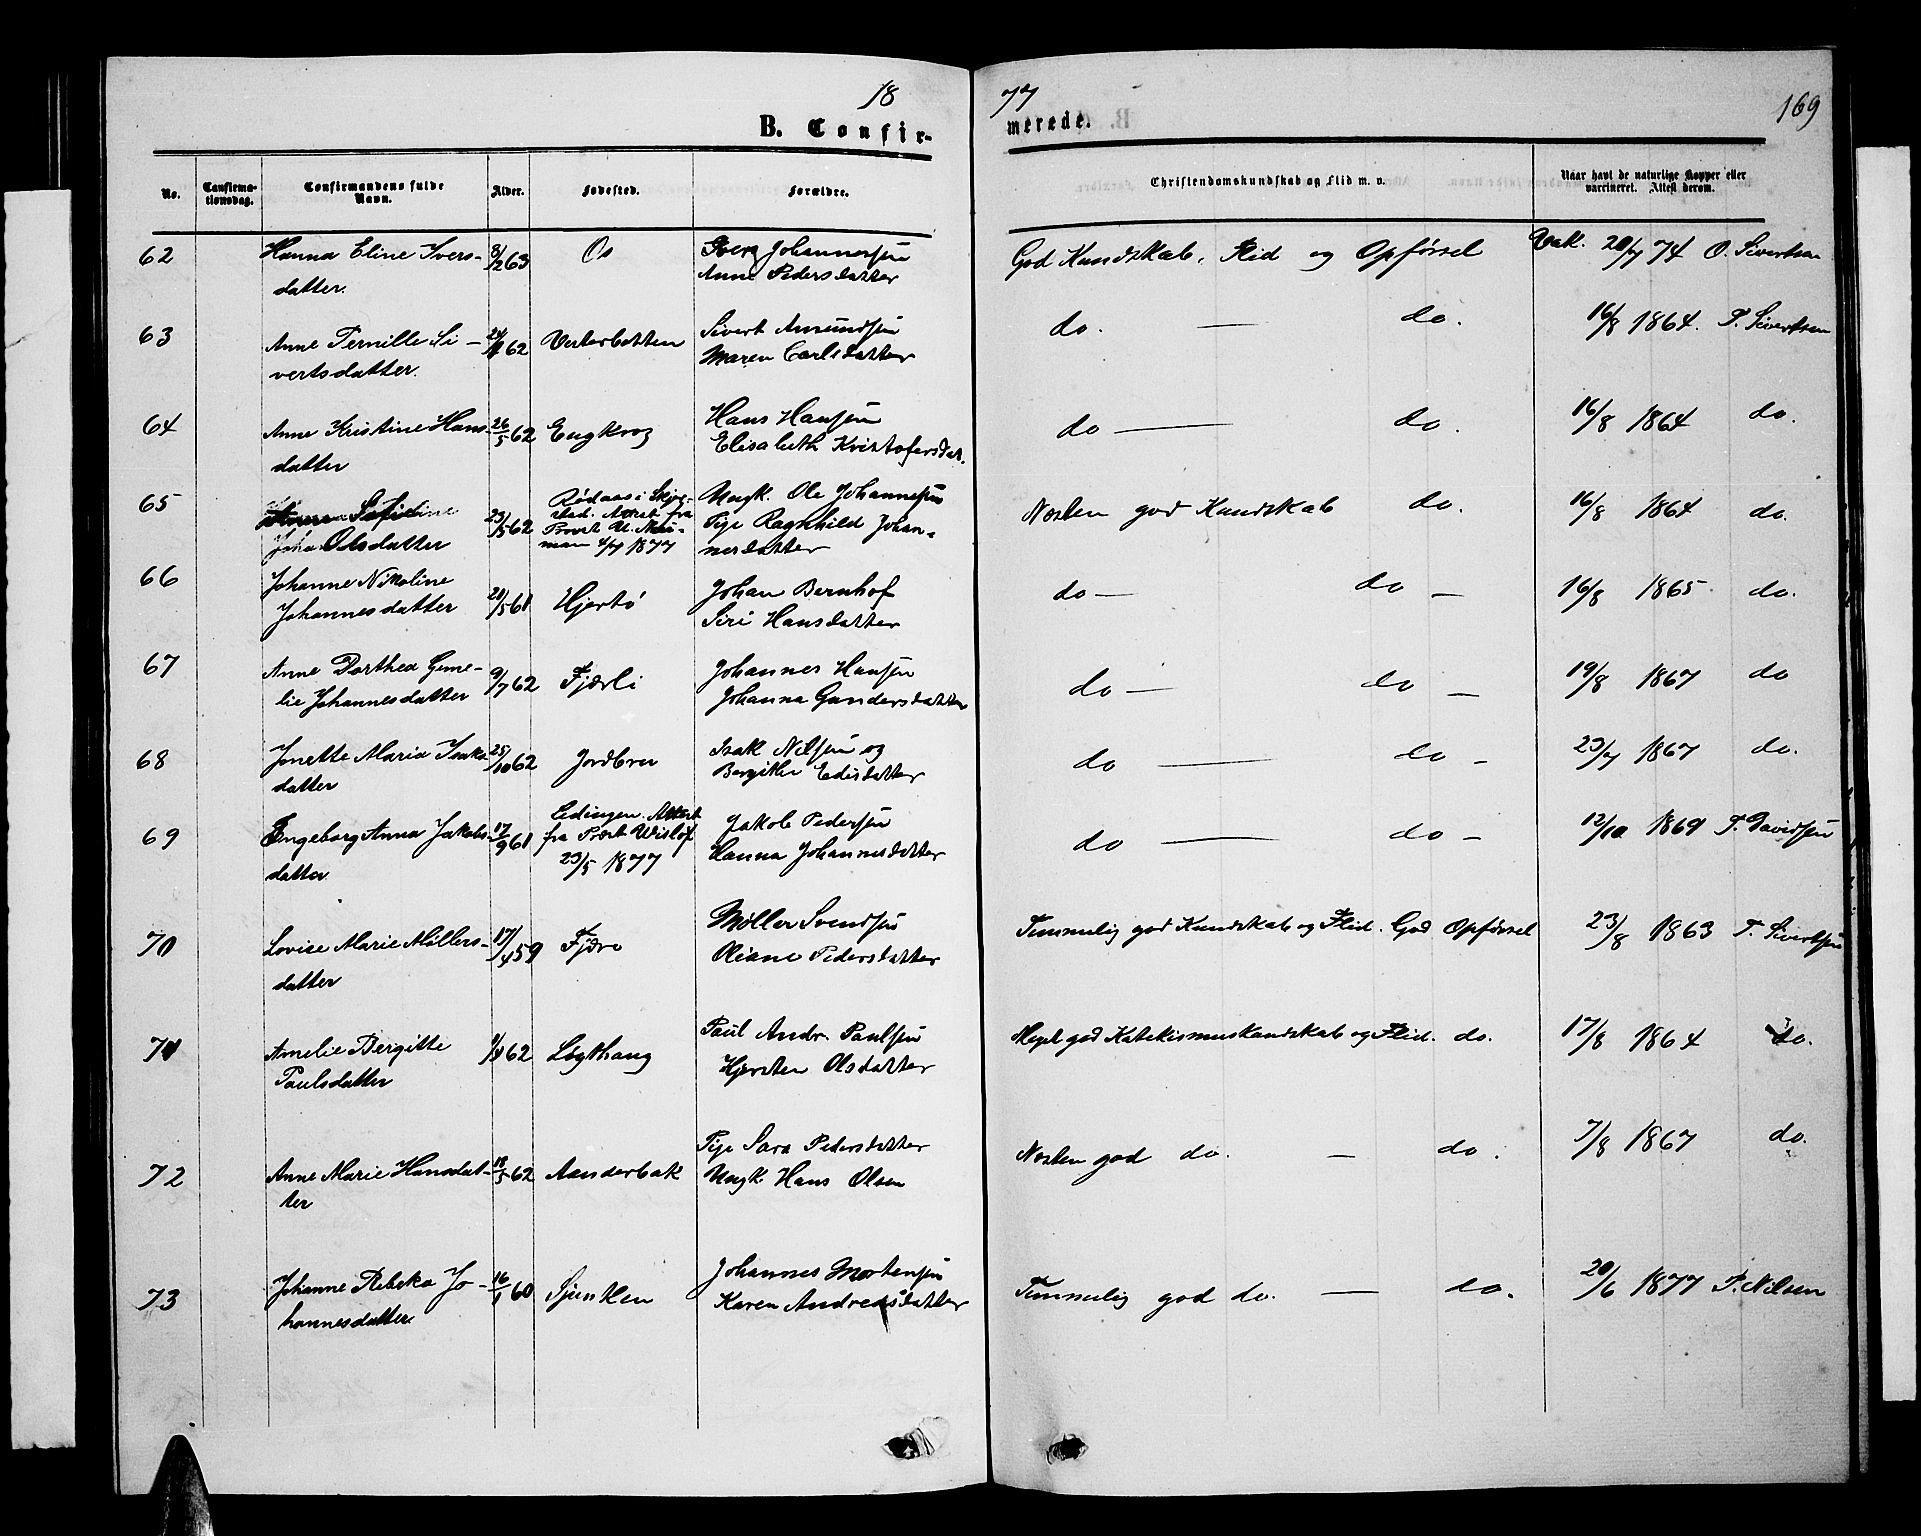 18 77
169
B. Confir- merede.
No. Confirmationsdag. Confirmandens fulde Navn. Alder. Fødested. Forældre. Christendomskundskab og Flid m. v. Naar havt de naturlige Kopper eller vaccineret. Attest derom.
62 Hanna Eline Ivers- 8/2 63 Os Iver Johannessen God Kundskab, Flid og Opførsel Vak. 20/7 74 O. Sivertsen
datter. Anne Pedersdatter
63 Anne Pernille Si- 24/4 62 Vesterbotten Sivert Amundsen do. — do. 16/8 1864. P. Sivertsen
vertsdatter. Maren Carlsdatter
64 Anne Kristine Hans- 26/5 62 Engkrog Hans Hansen do — do. 16/8 1864 do.
datter Elisabeth Kristofersdat.
65 Olsdatter 23/5 62 Rødaas i Skjer-
stad. Attest fra
Provst
4/7 1877
Ungk. Ole Johannesen
Pige Ragnhild Johan-
nesdatter
Næsten god Kundskab do. 16/8 1864 do.
66 Johanne Nikoline 20/5 61 Hjertø Johan Bernhof do — do — 16/8 1865 do.
Johannesdatter Siri Hansdatter
67 Anne Dorthea Geme- 9/7 62 Fjærli Johannes Hansen do — do — 19/8 1867 do
lie Johannesdatter Johanna Gundersdatter
68 Jonette Maria Isaks- 25/10 62 Jordbru Isak Nilsen og do — do — 23/7 1867 do.
datter Bergitte Edisdatter
69 Engeborg Anna Jakobs- 17/9 61 Lødingen. Attest
fra Præst Wisløf
23/5 1877
datter
Jakob Pedersen
Hanna Johannesdatter
do — do — 12/10 1869 P. Davidsen
70 Lovise Marie Møllers- 17/4 59 Fjære Møller Svendsen Temmelig god Kundskab og Flid. God Opførsel 23/8 1863 P. Sivertsen
datter Oliane Pedersdatter
71 Amelie Bergitte 9/4 62 Løgthaug Paul Andr. Paulsen Meget god Katekismuskundskab og Flid. do. 17/8 1864 do.
Paulsdatter Kjersten Olsdatter
72 Anne Marie Hansdat- 18/5 62 Aanderbak Pige Sara Pedersdatter Næsten god do. — do. 7/8 1867 do.
ter Ungk Hans Olsen
73 Johanne Rebeka Jo- 16/1 60 Sjunken Johannes Mortensen Temmelig god do. — do. 20/6 1877 P. Nilsen
hannesdatter Karen Andreasdatter